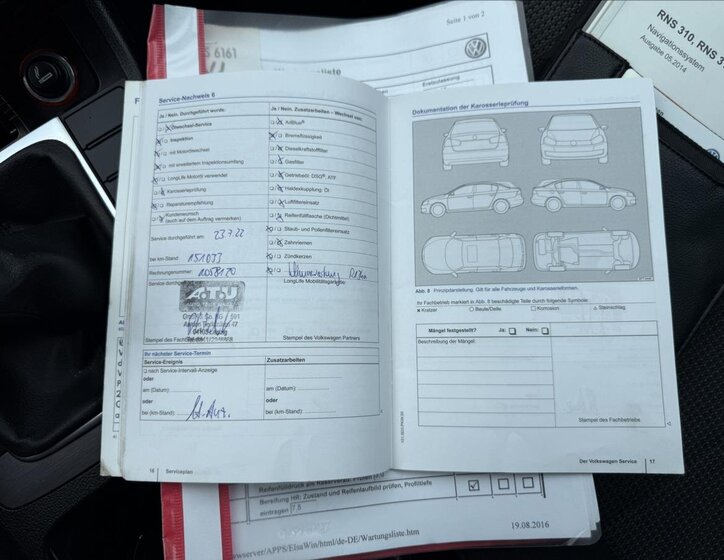 Seite 1 von 2
S 6161
RNS 310, RNS 3
Navigationssystem
Ausgabe 05.2014
Service-Nachweis 6
Ja / Nein. Durchgeführt wurde:
Ölwechsel-Service
Inspektion
mit Motorölwechsel
mit erweitertem Inspektionsumfang
LongLife Motoröl verwendet
Karosserieprüfung
Reparaturempfehlung
Kundenwunsch
(auch auf dem Auftrag vermerken)
Service durchgeführt am: 23.7.22
bei km-Stand 151033
Rechnungsnummer:
Service durch
A.T.U
Ja / Nein. Zusatzarbeiten – Wechsel von:
AdBlue®
Bremsflüssigkeit
Dieselkraftstofffilter
Gasfilter
Getriebeöl: DSG®, ATF
Haldexkupplung: Öl
Luftfiltereinsatz
Reifenfüllflasche (Dichtmittel)
Staub- und Pollenfiltereinsatz
Zahnriemen
Zündkerzen
LongLife Mobilitätsgarantie
Stempel des Volkswagen Partners
Ihr nächster Service-Termin
Service-Ereignis
nach Service-Intervall-Anzeige
oder
am (Datum):
oder
bei (km-Stand):
Zusatzarbeiten
oder
am (Datum):
oder
bei (km-Stand):
16 Serviceplan
Dokumentation der Karosserieprüfung
Abb. 8 Prinzipdarstellung. Gilt für alle Fahrzeuge und Karosserieformen.
Ihr Fachbetrieb markiert in Abb. 8 beschädigte Teile durch folgende Symbole:
× Kratzer ○ Beule/Delle □ Korrosion △ Steinschlag
Mängel festgestellt? Ja: Nein:
Beschreibung der Mängel:
Stempel des Fachbetriebs
Der Volkswagen Service 17
Bereifung HR: Zustand und Reifenlaufbild prüfen, Profiltiefe
eintragen 7.5
19.08.2016
wserver/APPS/ElsaWin/html/de-DE/Wartungsliste.htm